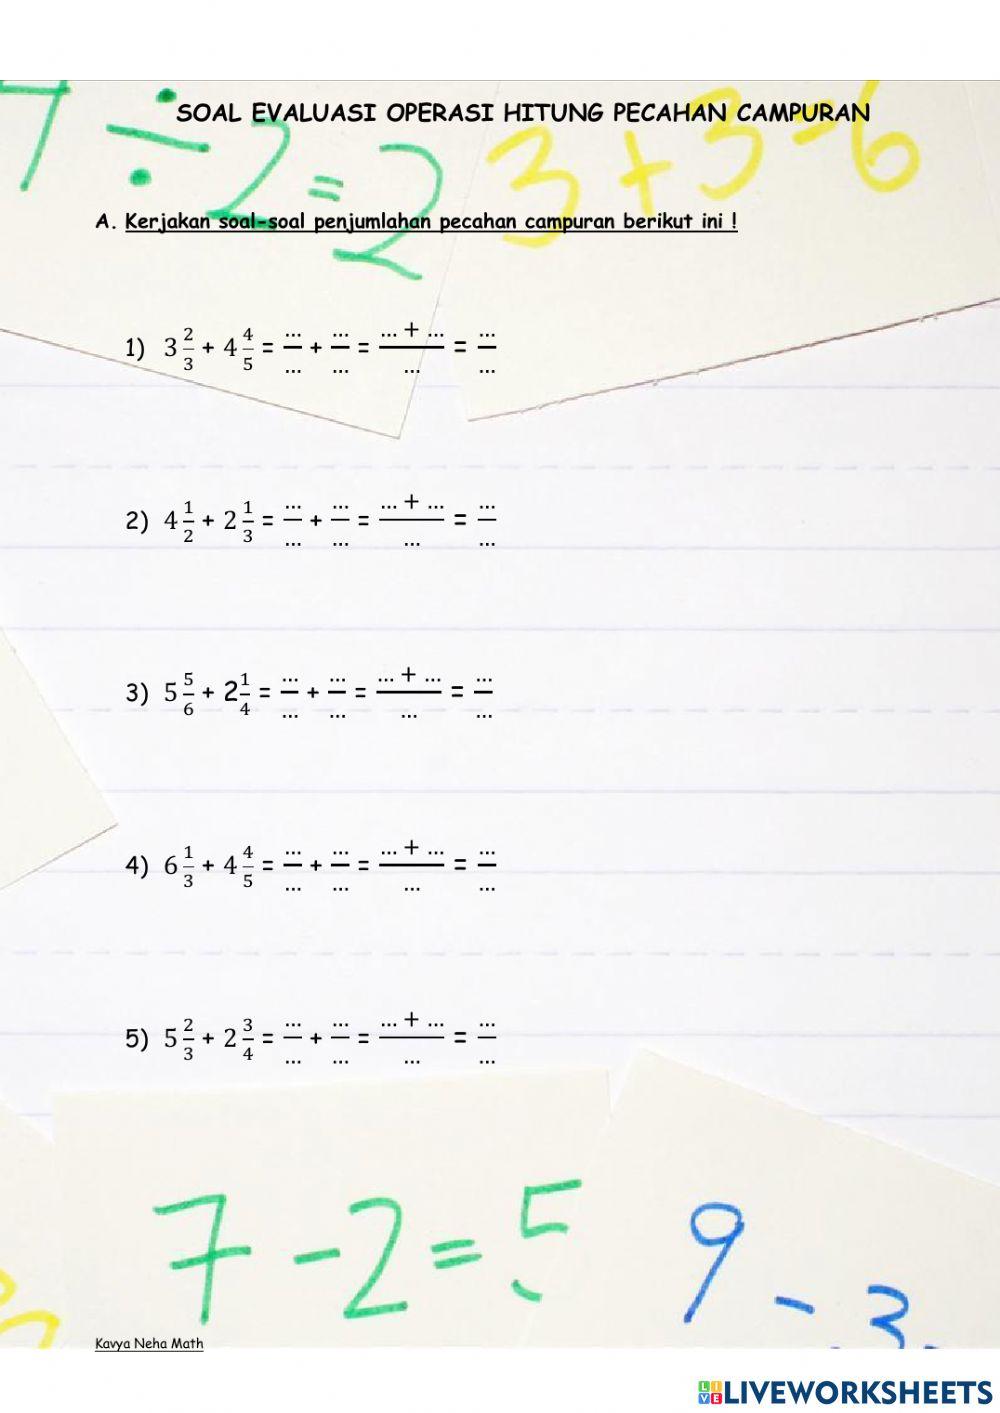 7 ÷ 2 = 2 3 + 3 = 6
SOAL EVALUASI OPERASI HITUNG PECAHAN CAMPURAN
A. Kerjakan soal-soal penjumlahan pecahan campuran berikut ini !
1) 3 2/3 + 4 4/5 = .../... + .../... = ... + .../... = .../...
2) 4 1/2 + 2 1/3 = .../... + .../... = ... + .../... = .../...
3) 5 5/6 + 2 1/4 = .../... + .../... = ... + .../... = .../...
4) 6 1/3 + 4 4/5 = .../... + .../... = ... + .../... = .../...
5) 5 2/3 + 2 3/4 = .../... + .../... = ... + .../... = .../...
7 - 2 = 5 9 - 3
Kavya Neha Math
LIVEWORKSHEETS